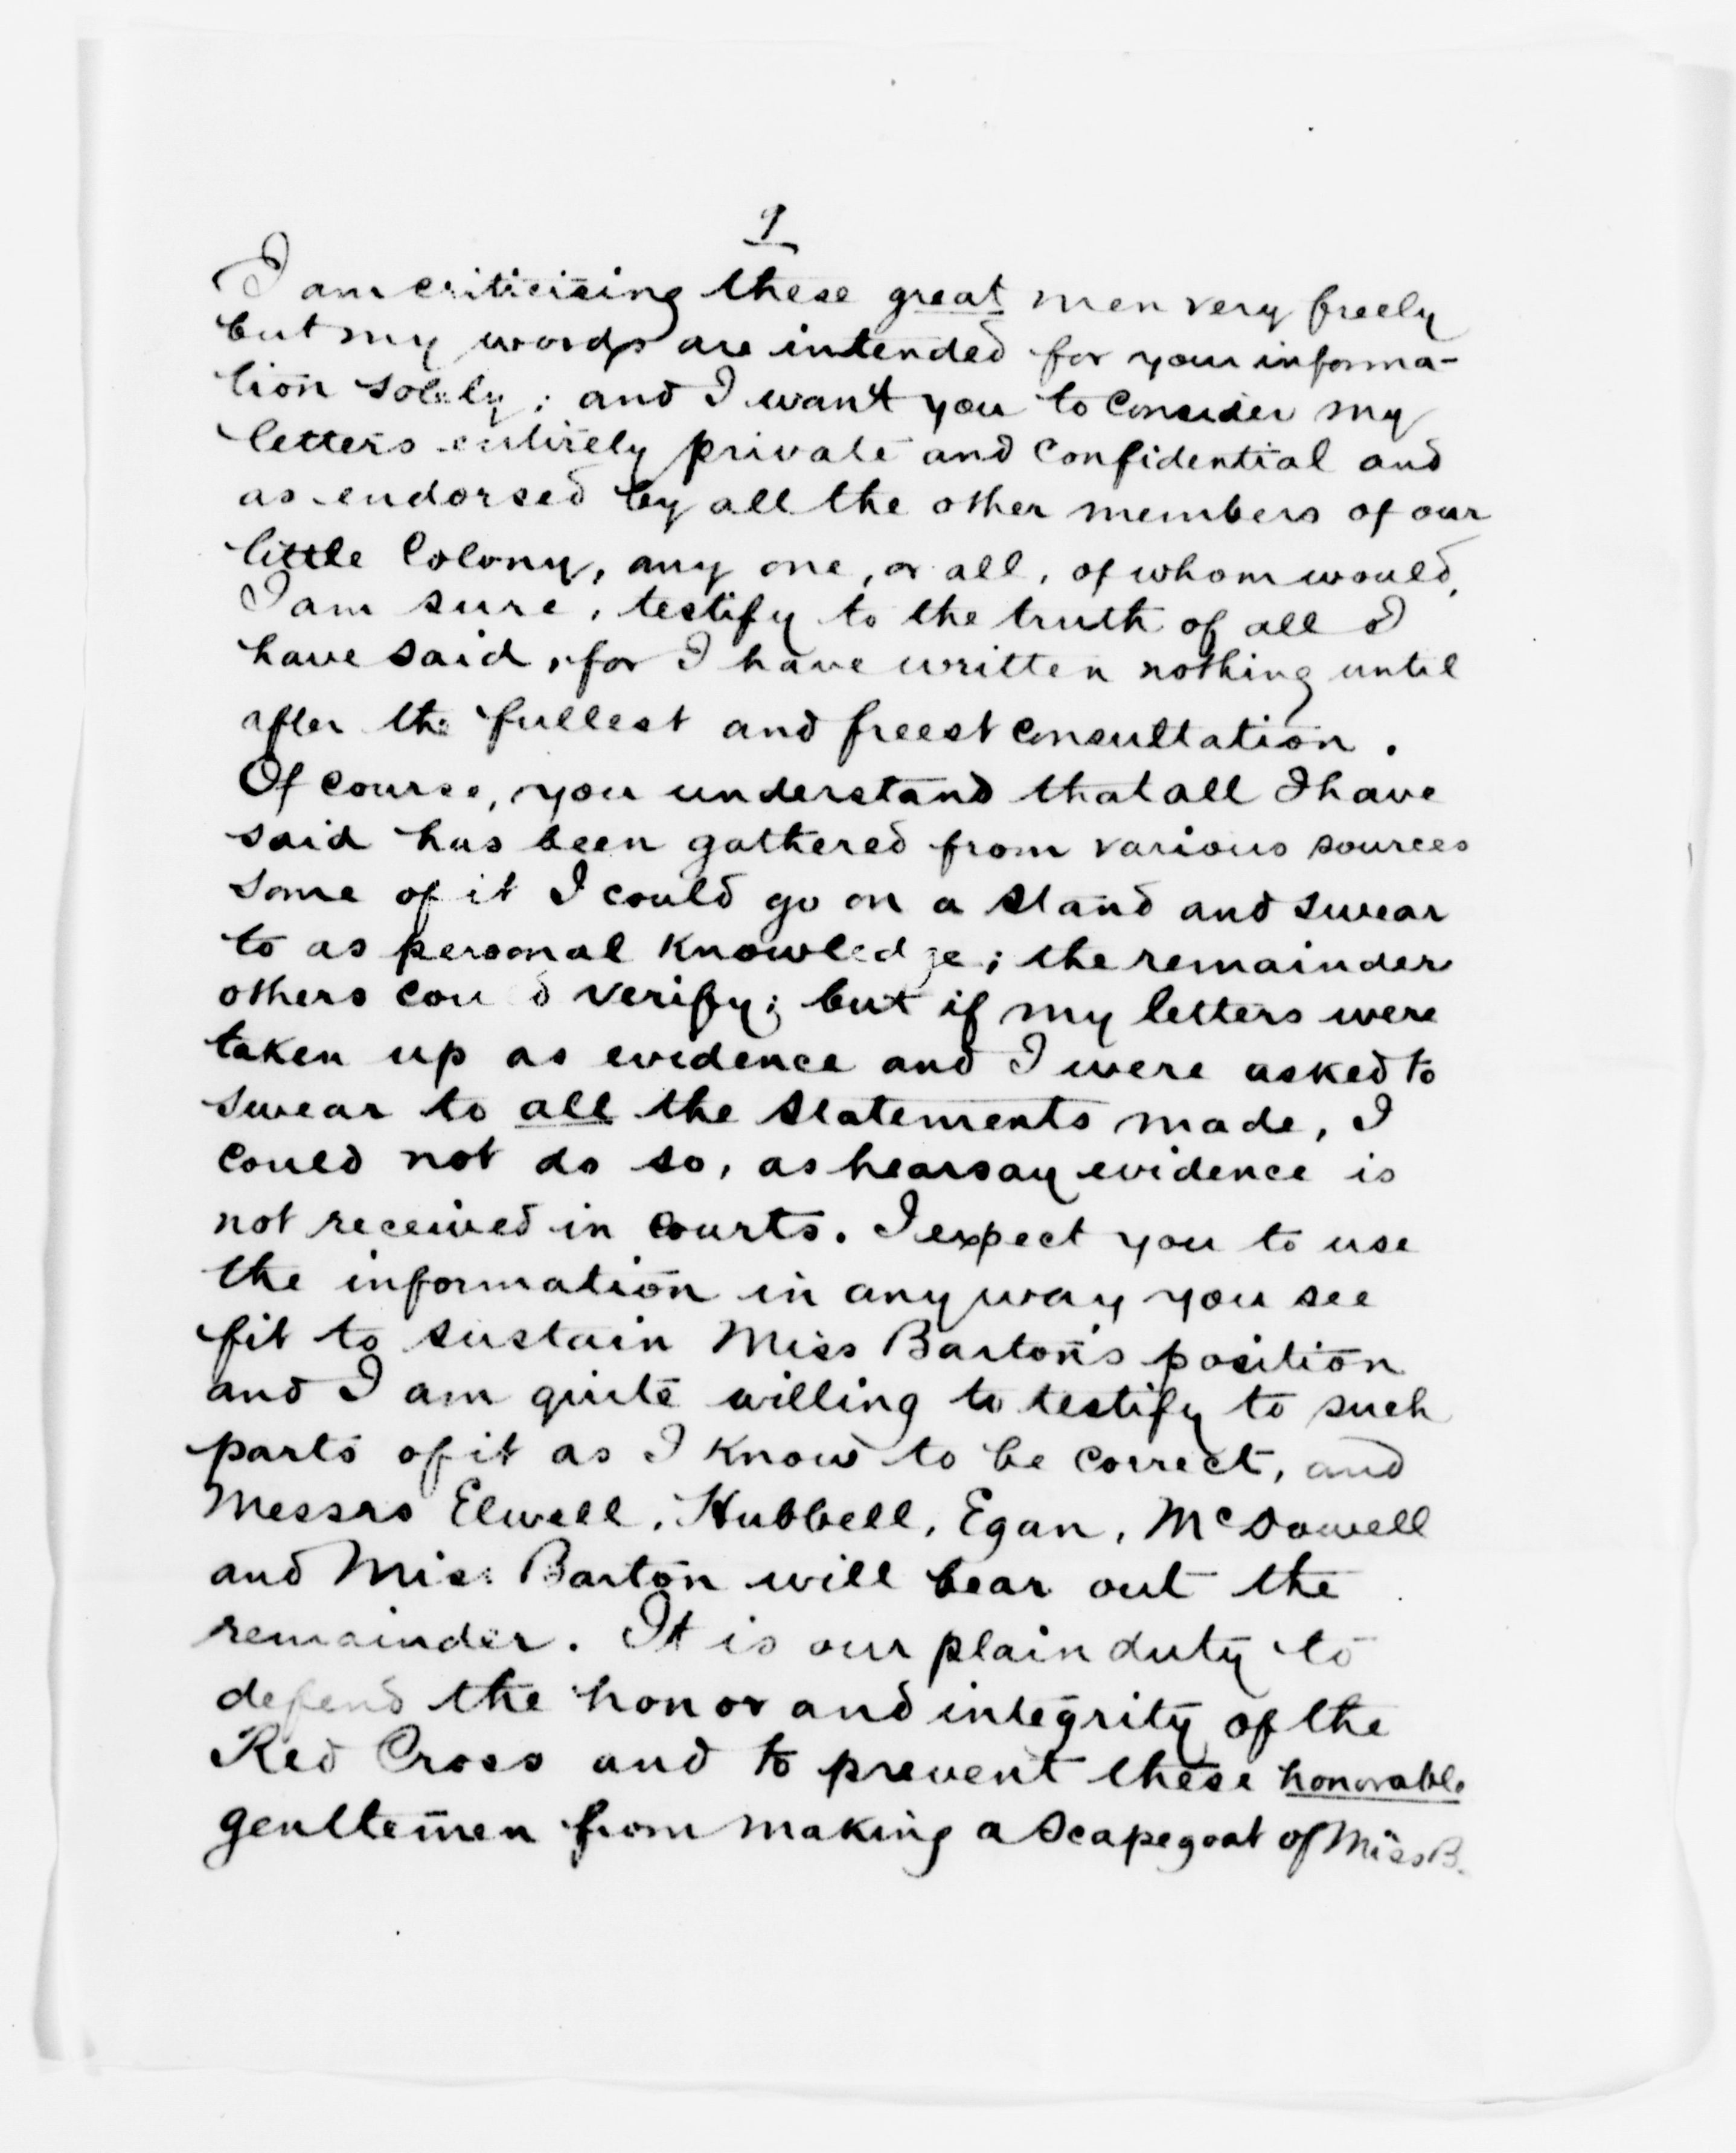 9
I am criticising these great men very freely
but my words are intended for your informa-
tion solely; and I want you to consider my
letters entirely private and confidential and
as endorsed by all the other members of our
little Colony, any one, or all, of whom would,
I am sure, testify to the truth of all I
have said, for I have written nothing until
after the fullest and freest consultation.
Of course, you understand that all I have
said has been gathered from various sources
some of it I could go on a stand and swear
to as personal knowledge; the remainder
others could verify; but if my letters were
taken up as evidence and I were asked to
swear to all the statements made, I
could not do so, as hearsay evidence is
not received in courts. I expect you to use
the information in any way you see
fit to sustain Miss Barton's position
and I am quite willing to testify to such
parts of it as I know to be correct, and
Messrs Elwell, Hubbell, Egan, McDowell
and Miss Barton will bear out the
remainder. It is our plain duty to
defend the honor and integrity of the
Red Cross and to prevent these honorable
genltemen from making a scapegoat of Miss B.